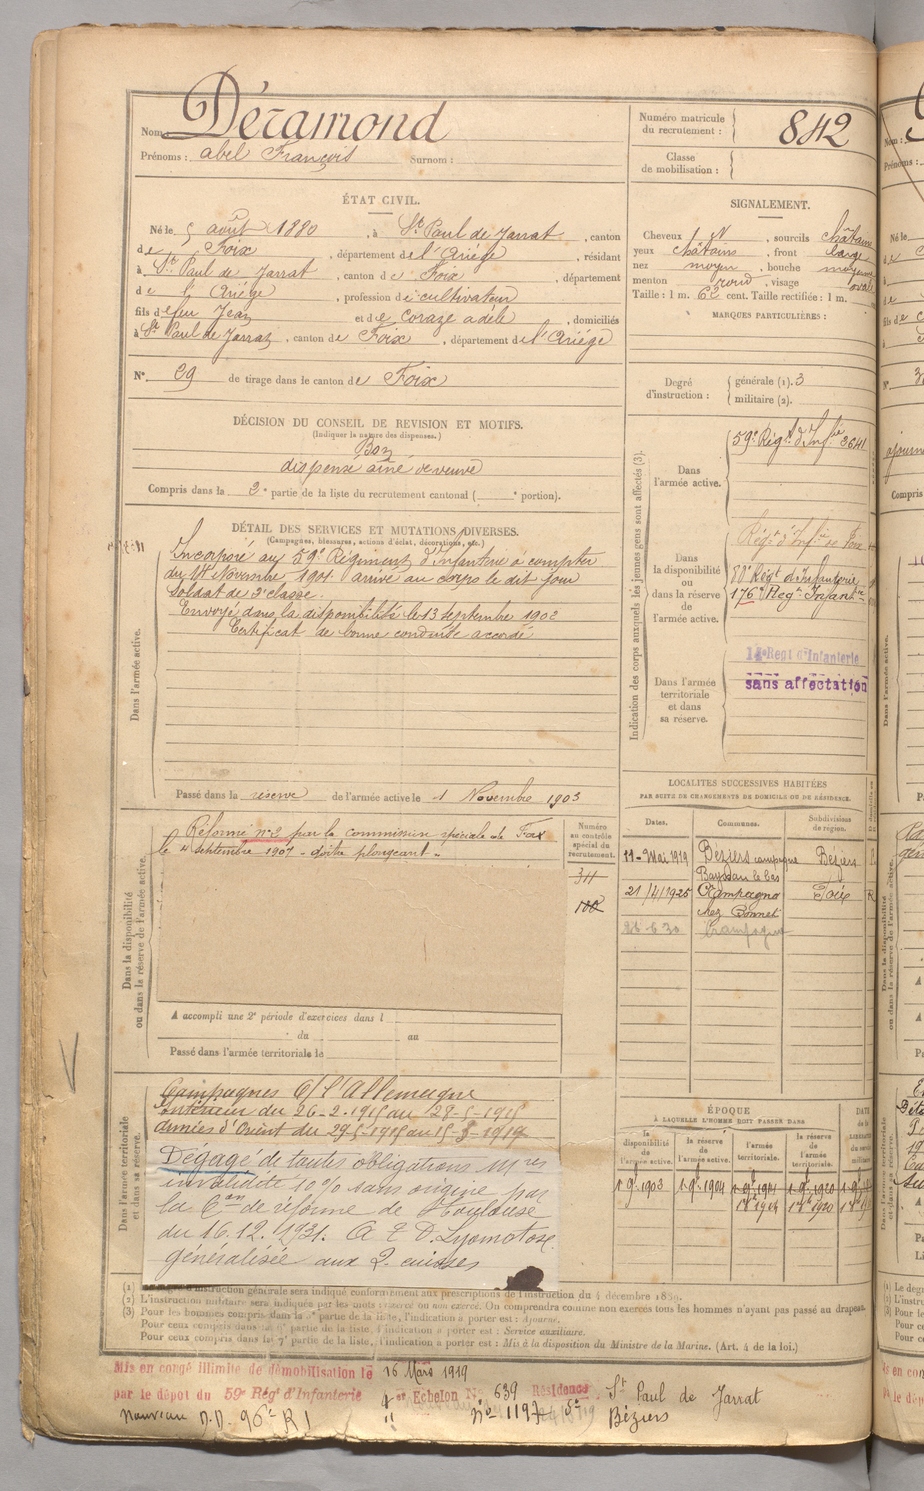 Nom : Déramond
Prénoms : abel François Surnom :
Numéro matricule du recrutement : 842
Classe de mobilisation :
ÉTAT CIVIL.
Né le 5 août 1880, à St Paul de Jarrat, canton
de Foix, département de l'Ariège, résidant
à St Paul de Jarrat, canton de Foix, département
de l'Ariège, profession de cultivateur
fils de feu Jean et de Coraze adèle, domiciliés
à St Paul de Jarrat, canton de Foix, département de l'Ariège
N° 29 de tirage dans le canton de Foix
SIGNALEMENT.
Cheveux et N, sourcils châtains
yeux châtains, front large
nez moyen, bouche moyenne
menton rond, visage ovale
Taille : 1 m. 62 cent. Taille rectifiée : 1 m.
MARQUES PARTICULIÈRES :
Degré d'instruction : générale (1). 3
militaire (2).
DÉCISION DU CONSEIL DE REVISION ET MOTIFS.
(Indiquer la nature des dispenses.)
Bon
dispense ainé de veuve
Compris dans la 2e partie de la liste du recrutement cantonal ( e portion).
DÉTAIL DES SERVICES ET MUTATIONS DIVERSES.
(Campagnes, blessures, actions d'éclat, décorations, etc.)
Dans l'armée active.
Incorporé au 59e Régiment d'Infanterie à compter
du 14 Novembre 1901 arrivé au corps le dit jour
Soldat de 2e classe.
Envoyé dans la disponibilité le 13 Septembre 1902
Certificat de bonne conduite accordé
Passé dans la réserve de l'armée active le 1 Novembre 1903
Indication des corps auxquels les jeunes gens sont affectés (3).
Dans l'armée active.
59e Régt d'Infie 2641
Dans la disponibilité ou dans la réserve de l'armée active.
Régt d'Infie de Foix
88e Régt d'Infanterie
176e Régt Infantrie
Dans l'armée territoriale et dans sa réserve.
14e Régt d'Infanterie
sans affectation
Dans la disponibilité ou dans la réserve de l'armée active.
Réformé n°2 par la commission spéciale de Foix
le 4 Septembre 1907 - goitre plongeant -
Numéro au contrôle spécial du recrutement.
311
100
A accompli une 2e période d'exercices dans l
du au
Passé dans l'armée territoriale le
LOCALITÉS SUCCESSIVES HABITÉES
PAR SUITE DE CHANGEMENTS DE DOMICILE OU DE RÉSIDENCE.
Dates. Communes. Subdivisions de région.
11-Mai 1919 Béziers campagne Béziers R
Bayssan le bas
21/4/1925 Campagna Foix R
chez Bonnet
26-6-30 Campagna
Dans l'armée territoriale et dans sa réserve.
Campagnes C/ l'Allemagne
Intérieur du 26-2-1915 au 28-5-1915
Armées d'Orient du 29-5-1915 au 15-3-1919
Dégagé de toutes obligations Mres
invalidité 10% sans origine par
la Con de réforme de Toulouse
du 16.12.1931. A T D. Lypomatose
généralisée aux 2 cuisses
ÉPOQUE
À LAQUELLE L'HOMME DOIT PASSER DANS
la disponibilité de l'armée active. la réserve de l'armée active. l'armée territoriale. la réserve de l'armée territoriale.
1 9e 1903 1 9e 1904 1 9e 1914 1 9e 1920
(1) Le degré d'instruction générale sera indiqué conformément aux prescriptions de l'instruction du 4 décembre 1889.
(2) L'instruction militaire sera indiquée par les mots : exercé ou non exercé. On comprendra comme non exercés tous les hommes n'ayant pas passé au drapeau.
(3) Pour les hommes compris dans la 5e partie de la liste, l'indication à porter est : Ajourné.
Pour ceux compris dans la 6e partie de la liste, l'indication à porter est : Service auxiliaire.
Pour ceux compris dans la 7e partie de la liste, l'indication à porter est : Mis à la disposition du Ministre de la Marine. (Art. 4 de la loi.)
Mis en congé illimité de démobilisation le 16 Mars 1919
par le dépôt du 59e Régt d'Infanterie 4e Echelon N° 639 Résidence St Paul de Jarrat
Nouveau D.D. 96e R I " N° 1197 5e Béziers